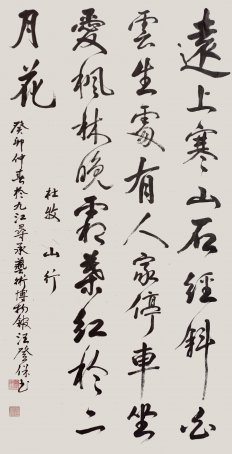 遠上寒山石經斜白
雲生處有人家停車坐
愛楓林晚霜葉紅於二
月花
杜牧 山行
癸卯仲春於九江尋承藝術博物館汪登保書